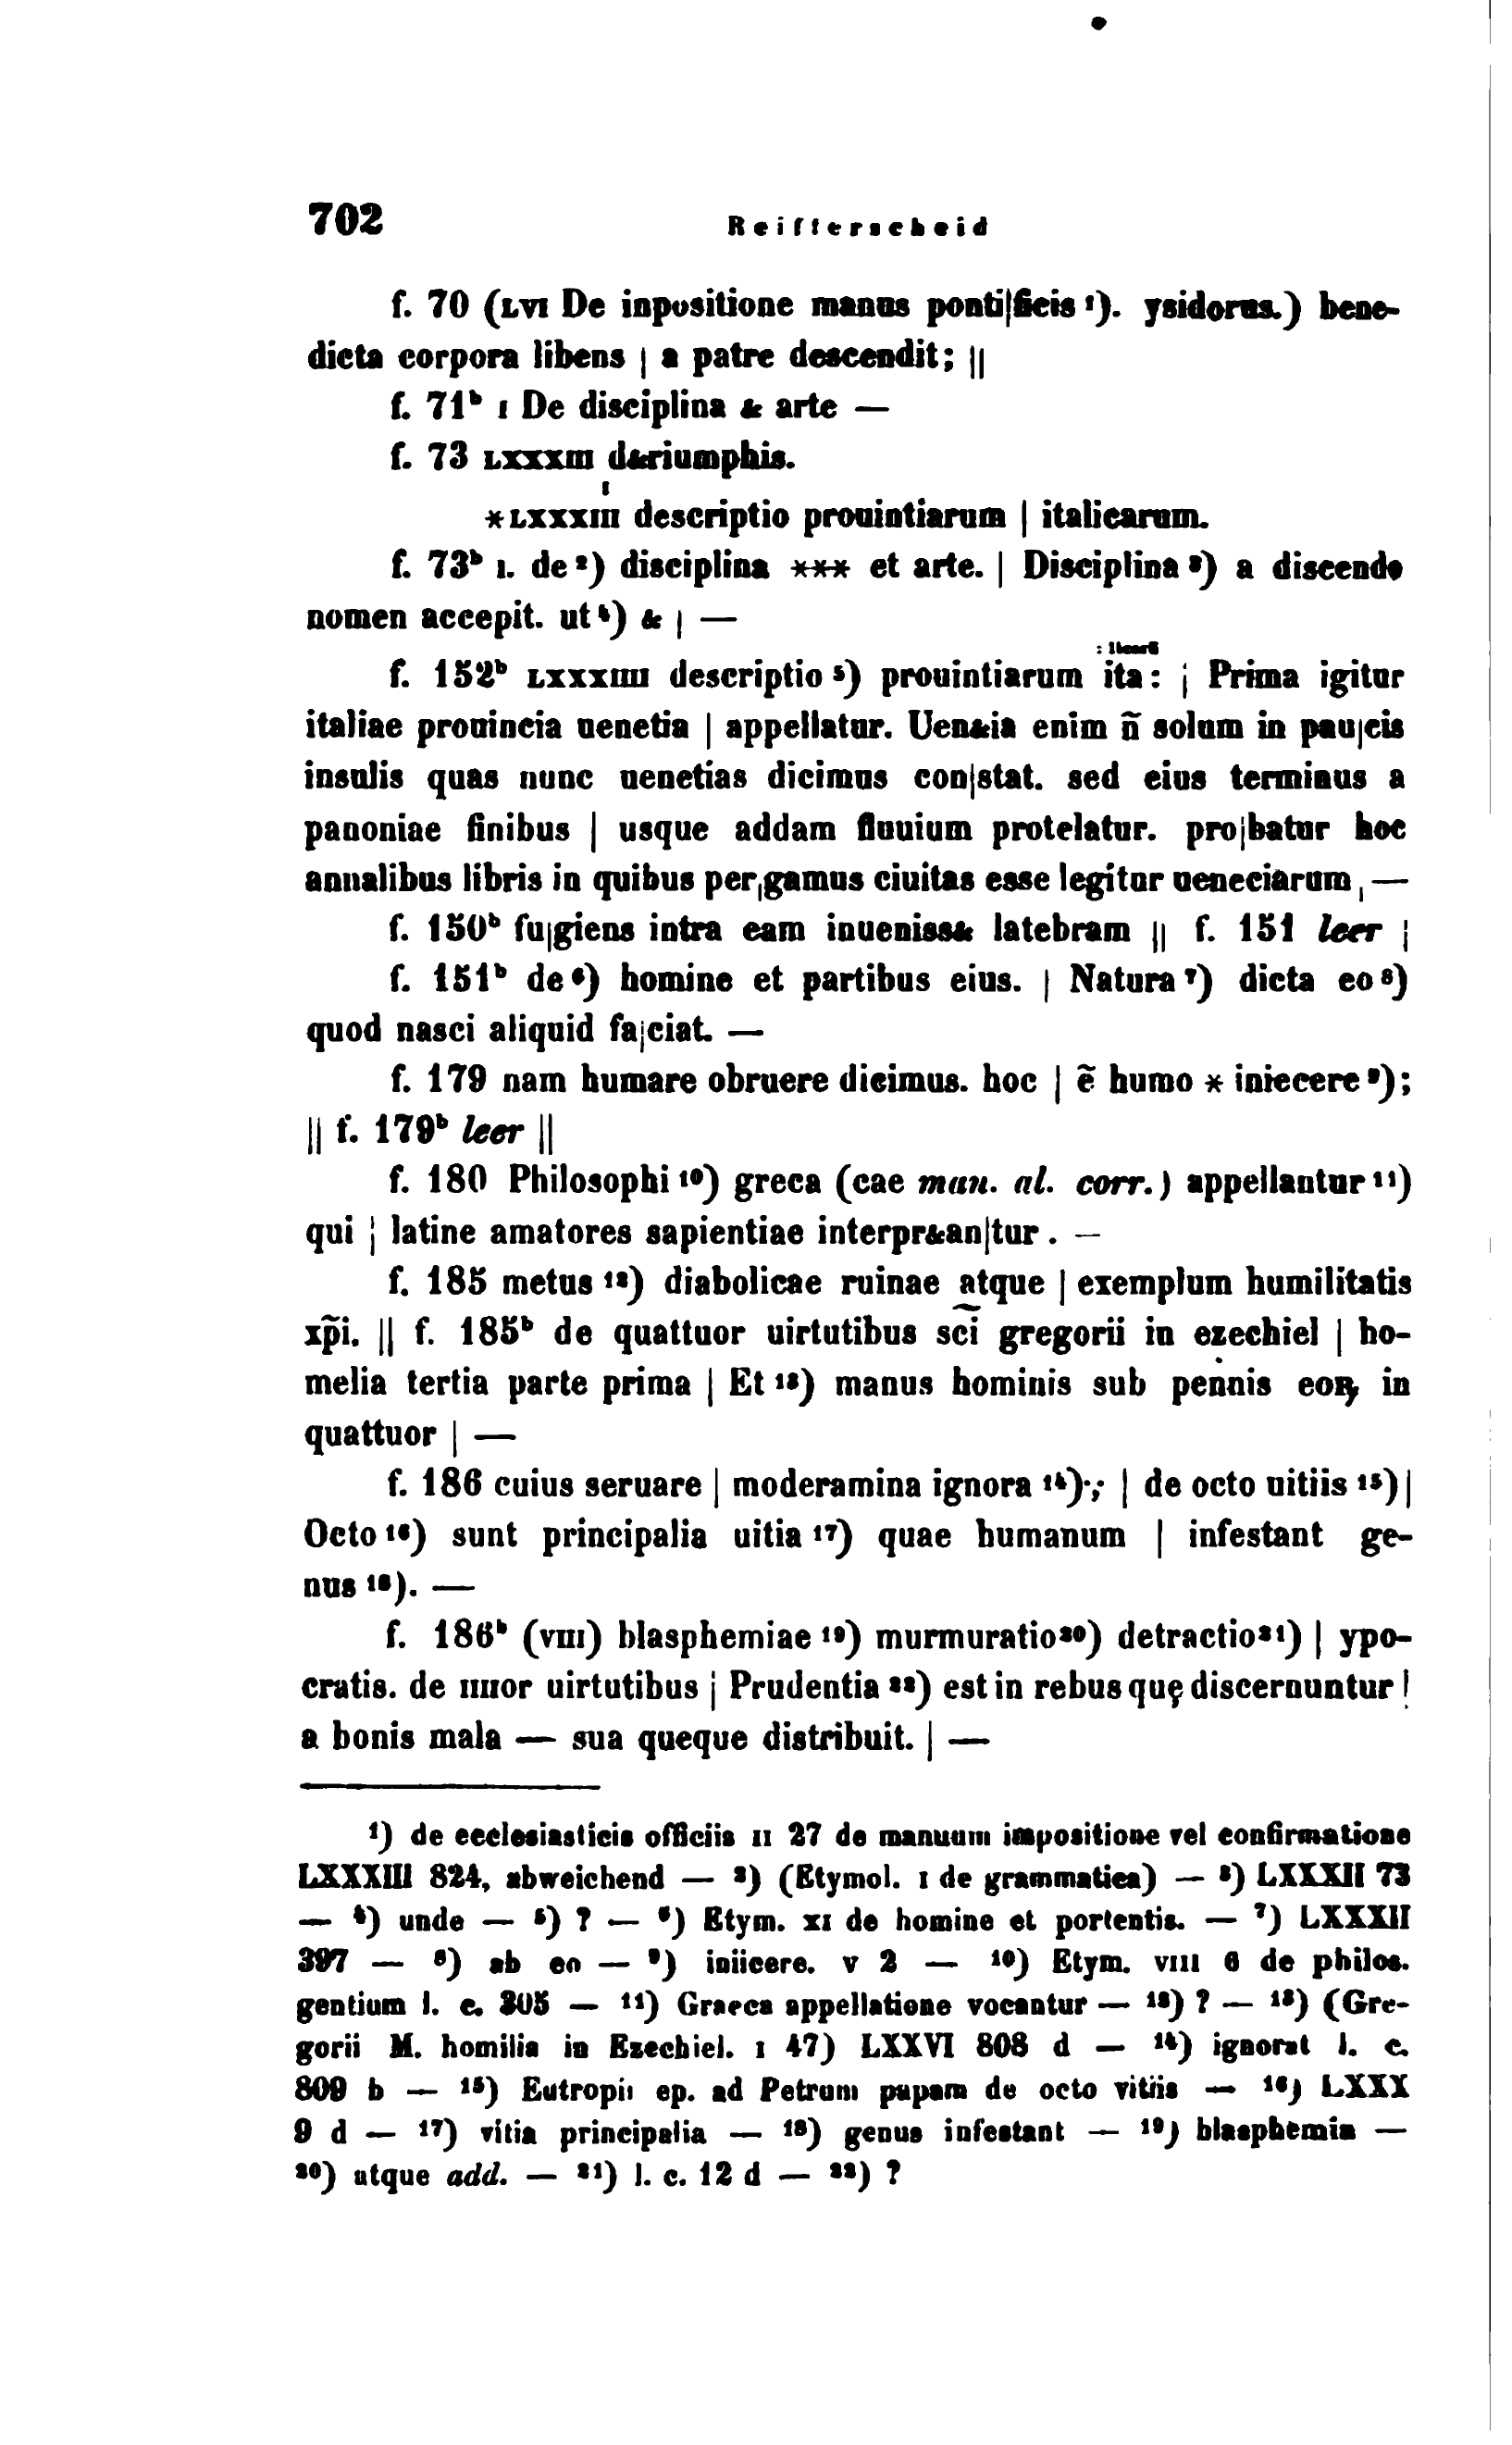 702 Reifferscheid
f. 70 (LVI De inpositione manus ponti|ficis ¹). ysidorus.) bene-
dicta corpora libens | a patre descendit; ||
f. 71ᵇ I De disciplina & arte —
f. 73 LXXXIII d&riumphis.
I
*LXXXIII descriptio prouintiarum | italicarum.
f. 73ᵇ I. de ²) disciplina *** et arte. | Disciplina ³) a discendo
nomen accepit. ut ⁴) & | —
f. 152ᵇ LXXXIIII descriptio ⁵) prouintiarum ita: | Prima igitur
italiae prouincia uenetia | appellatur. Uen&ia enim n̄ solum in pau|cis
insulis quas nunc uenetias dicimus con|stat. sed eius terminus a
panoniae finibus | usque addam fluuium protelatur. pro|batur hoc
annalibus libris in quibus per|gamus ciuitas esse legitur ueneciarum | —
f. 150ᵇ fu|giens intra eam inueniss& latebram || f. 151 leer |
f. 151ᵇ de ⁶) homine et partibus eius. | Natura ⁷) dicta eo ⁸)
quod nasci aliquid fa|ciat. —
f. 179 nam humare obruere dicimus. hoc | ē humo * iniecere ⁹);
|| f. 179ᵇ leer ||
f. 180 Philosophi ¹⁰) greca (cae man. al. corr.) appellantur ¹¹)
qui | latine amatores sapientiae interpr&an|tur . —
f. 185 metus ¹²) diabolicae ruinae atque | exemplum humilitatis
xp̄i. || f. 185ᵇ de quattuor uirtutibus sc̄i gregorii in ezechiel | ho-
melia tertia parte prima | Et ¹³) manus hominis sub pennis eoꝝ in
quattuor | —
f. 186 cuius seruare | moderamina ignora ¹⁴)·,· | de octo uitiis ¹⁵) |
Octo ¹⁶) sunt principalia uitia ¹⁷) quae humanum | infestant ge-
nus ¹⁸). —
f. 186ᵇ (VIII) blasphemiae ¹⁹) murmuratio ²⁰) detractio ²¹) | ypo-
cratis. de IIIIor uirtutibus | Prudentia ²²) est in rebus quę discernuntur |
a bonis mala — sua queque distribuit. | —
¹) de ecclesiasticis officiis II 27 de manuum impositione vel confirmatione
LXXXIII 824, abweichend — ²) (Etymol. I de grammatica) — ³) LXXXII 73
— ⁴) unde — ⁵) ? — ⁶) Etym. XI de homine et portentis. — ⁷) LXXXII
397 — ⁸) ab eo — ⁹) iniicere. v 2 — ¹⁰) Etym. VIII 6 de philos.
gentium l. c. 305 — ¹¹) Graeca appellatione vocantur — ¹²) ? — ¹³) (Gre-
gorii M. homilia in Ezechiel. I 47) LXXVI 808 d — ¹⁴) ignorat l. c.
809 b — ¹⁵) Eutropii ep. ad Petrum papam de octo vitiis — ¹⁶) LXXX
9 d — ¹⁷) vitia principalia — ¹⁸) genus infestant — ¹⁹) blasphemia —
²⁰) atque add. — ²¹) l. c. 12 d — ²²) ?